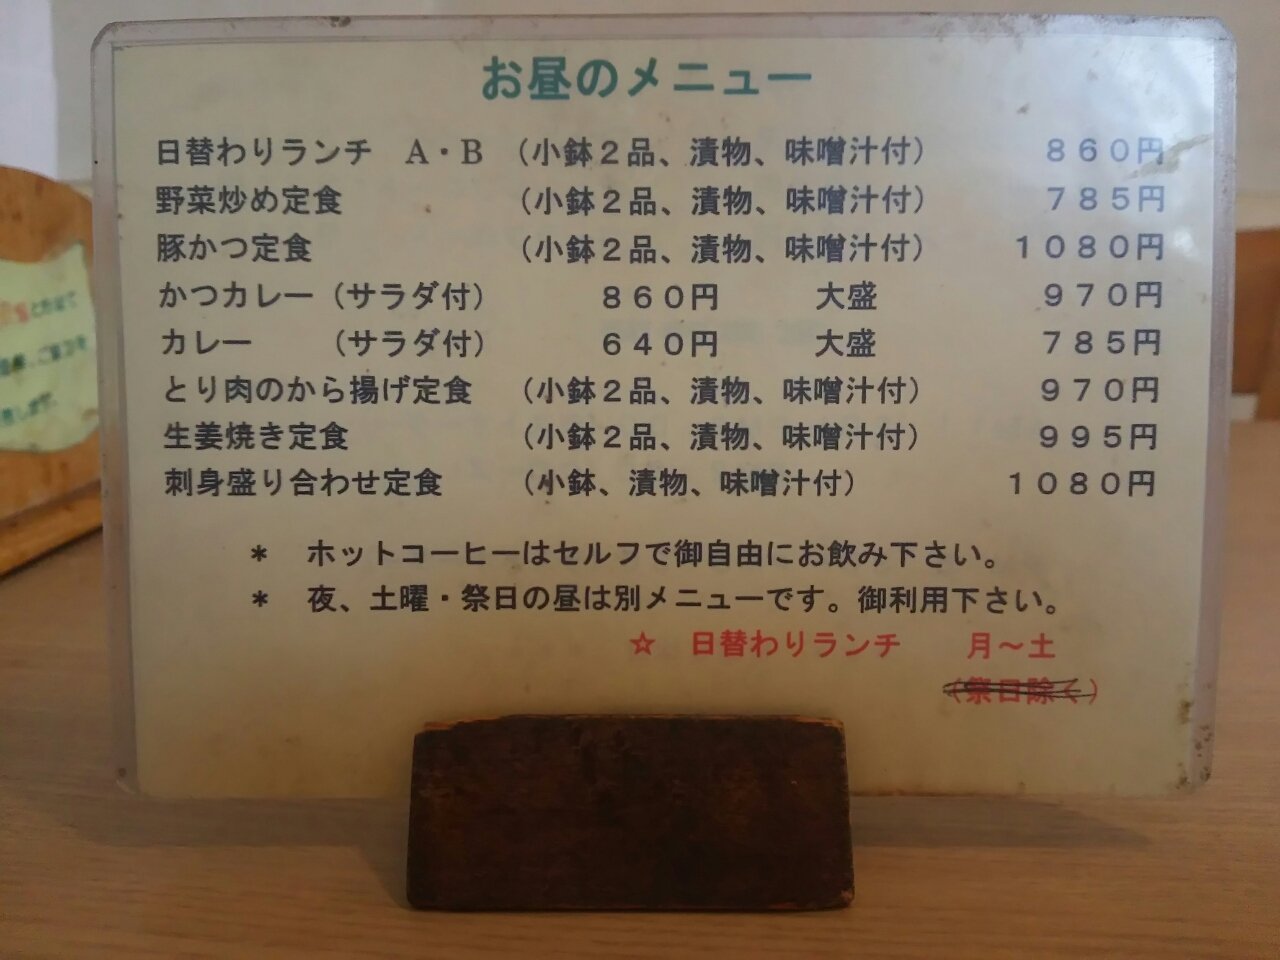 お昼のメニュー
日替わりランチ　A・B　（小鉢２品、漬物、味噌汁付）　８６０円
野菜炒め定食　（小鉢２品、漬物、味噌汁付）　７８５円
豚かつ定食　（小鉢２品、漬物、味噌汁付）　１０８０円
かつカレー（サラダ付）　８６０円　大盛　９７０円
カレー　（サラダ付）　６４０円　大盛　７８５円
とり肉のから揚げ定食　（小鉢２品、漬物、味噌汁付）　９７０円
生姜焼き定食　（小鉢２品、漬物、味噌汁付）　９９５円
刺身盛り合わせ定食　（小鉢、漬物、味噌汁付）　１０８０円
＊　ホットコーヒーはセルフで御自由にお飲み下さい。
＊　夜、土曜・祭日の昼は別メニューです。御利用下さい。
☆　日替わりランチ　月～土
（祭日除く）